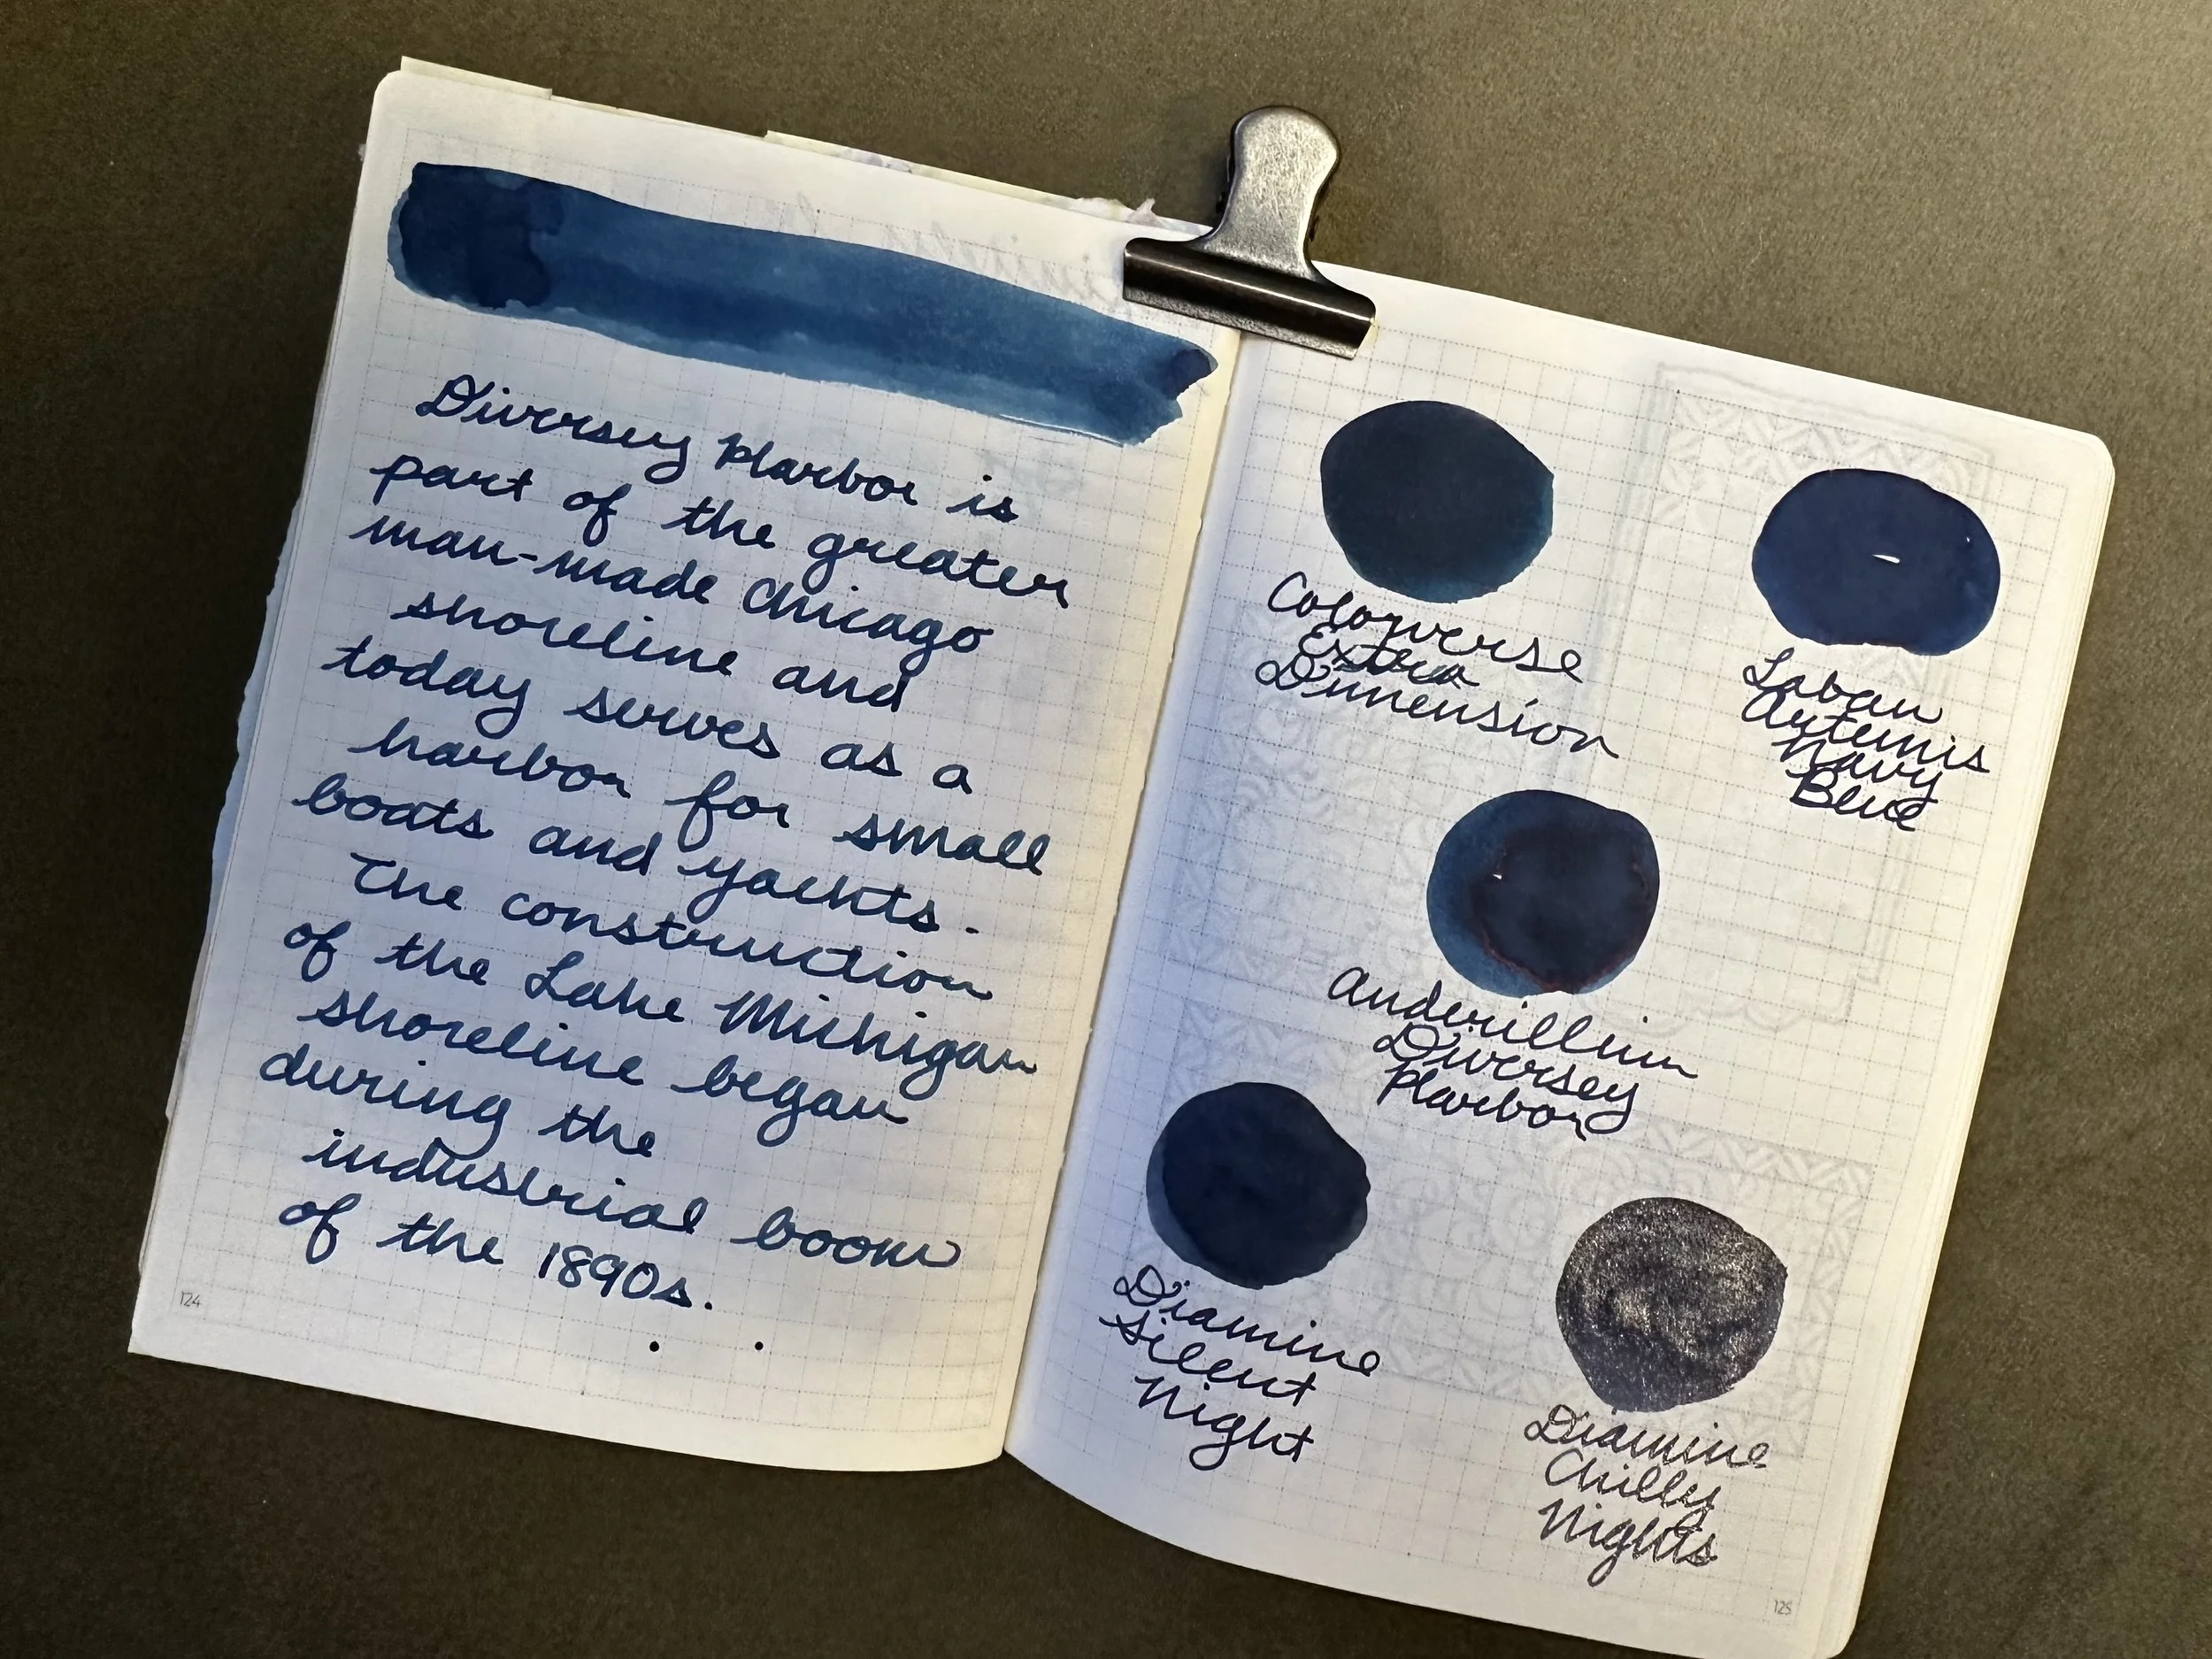 Diversey Harbor is
part of the greater
man-made Chicago
shoreline and
today serves as a
harbor for small
boats and yachts.
The construction
of the Lake Michigan
shoreline began
during the
industrial boom
of the 1890s.
124
Colorverse
Extra
Dimension
Laban
Artemis
Navy
Blue
Anderillium
Diversey
Harbor
Diamine
Silent
Night
Diamine
Chilly
Nights
125